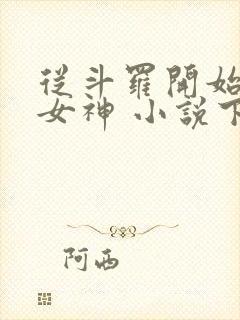 從斗羅開始
女神 小說下
阿西